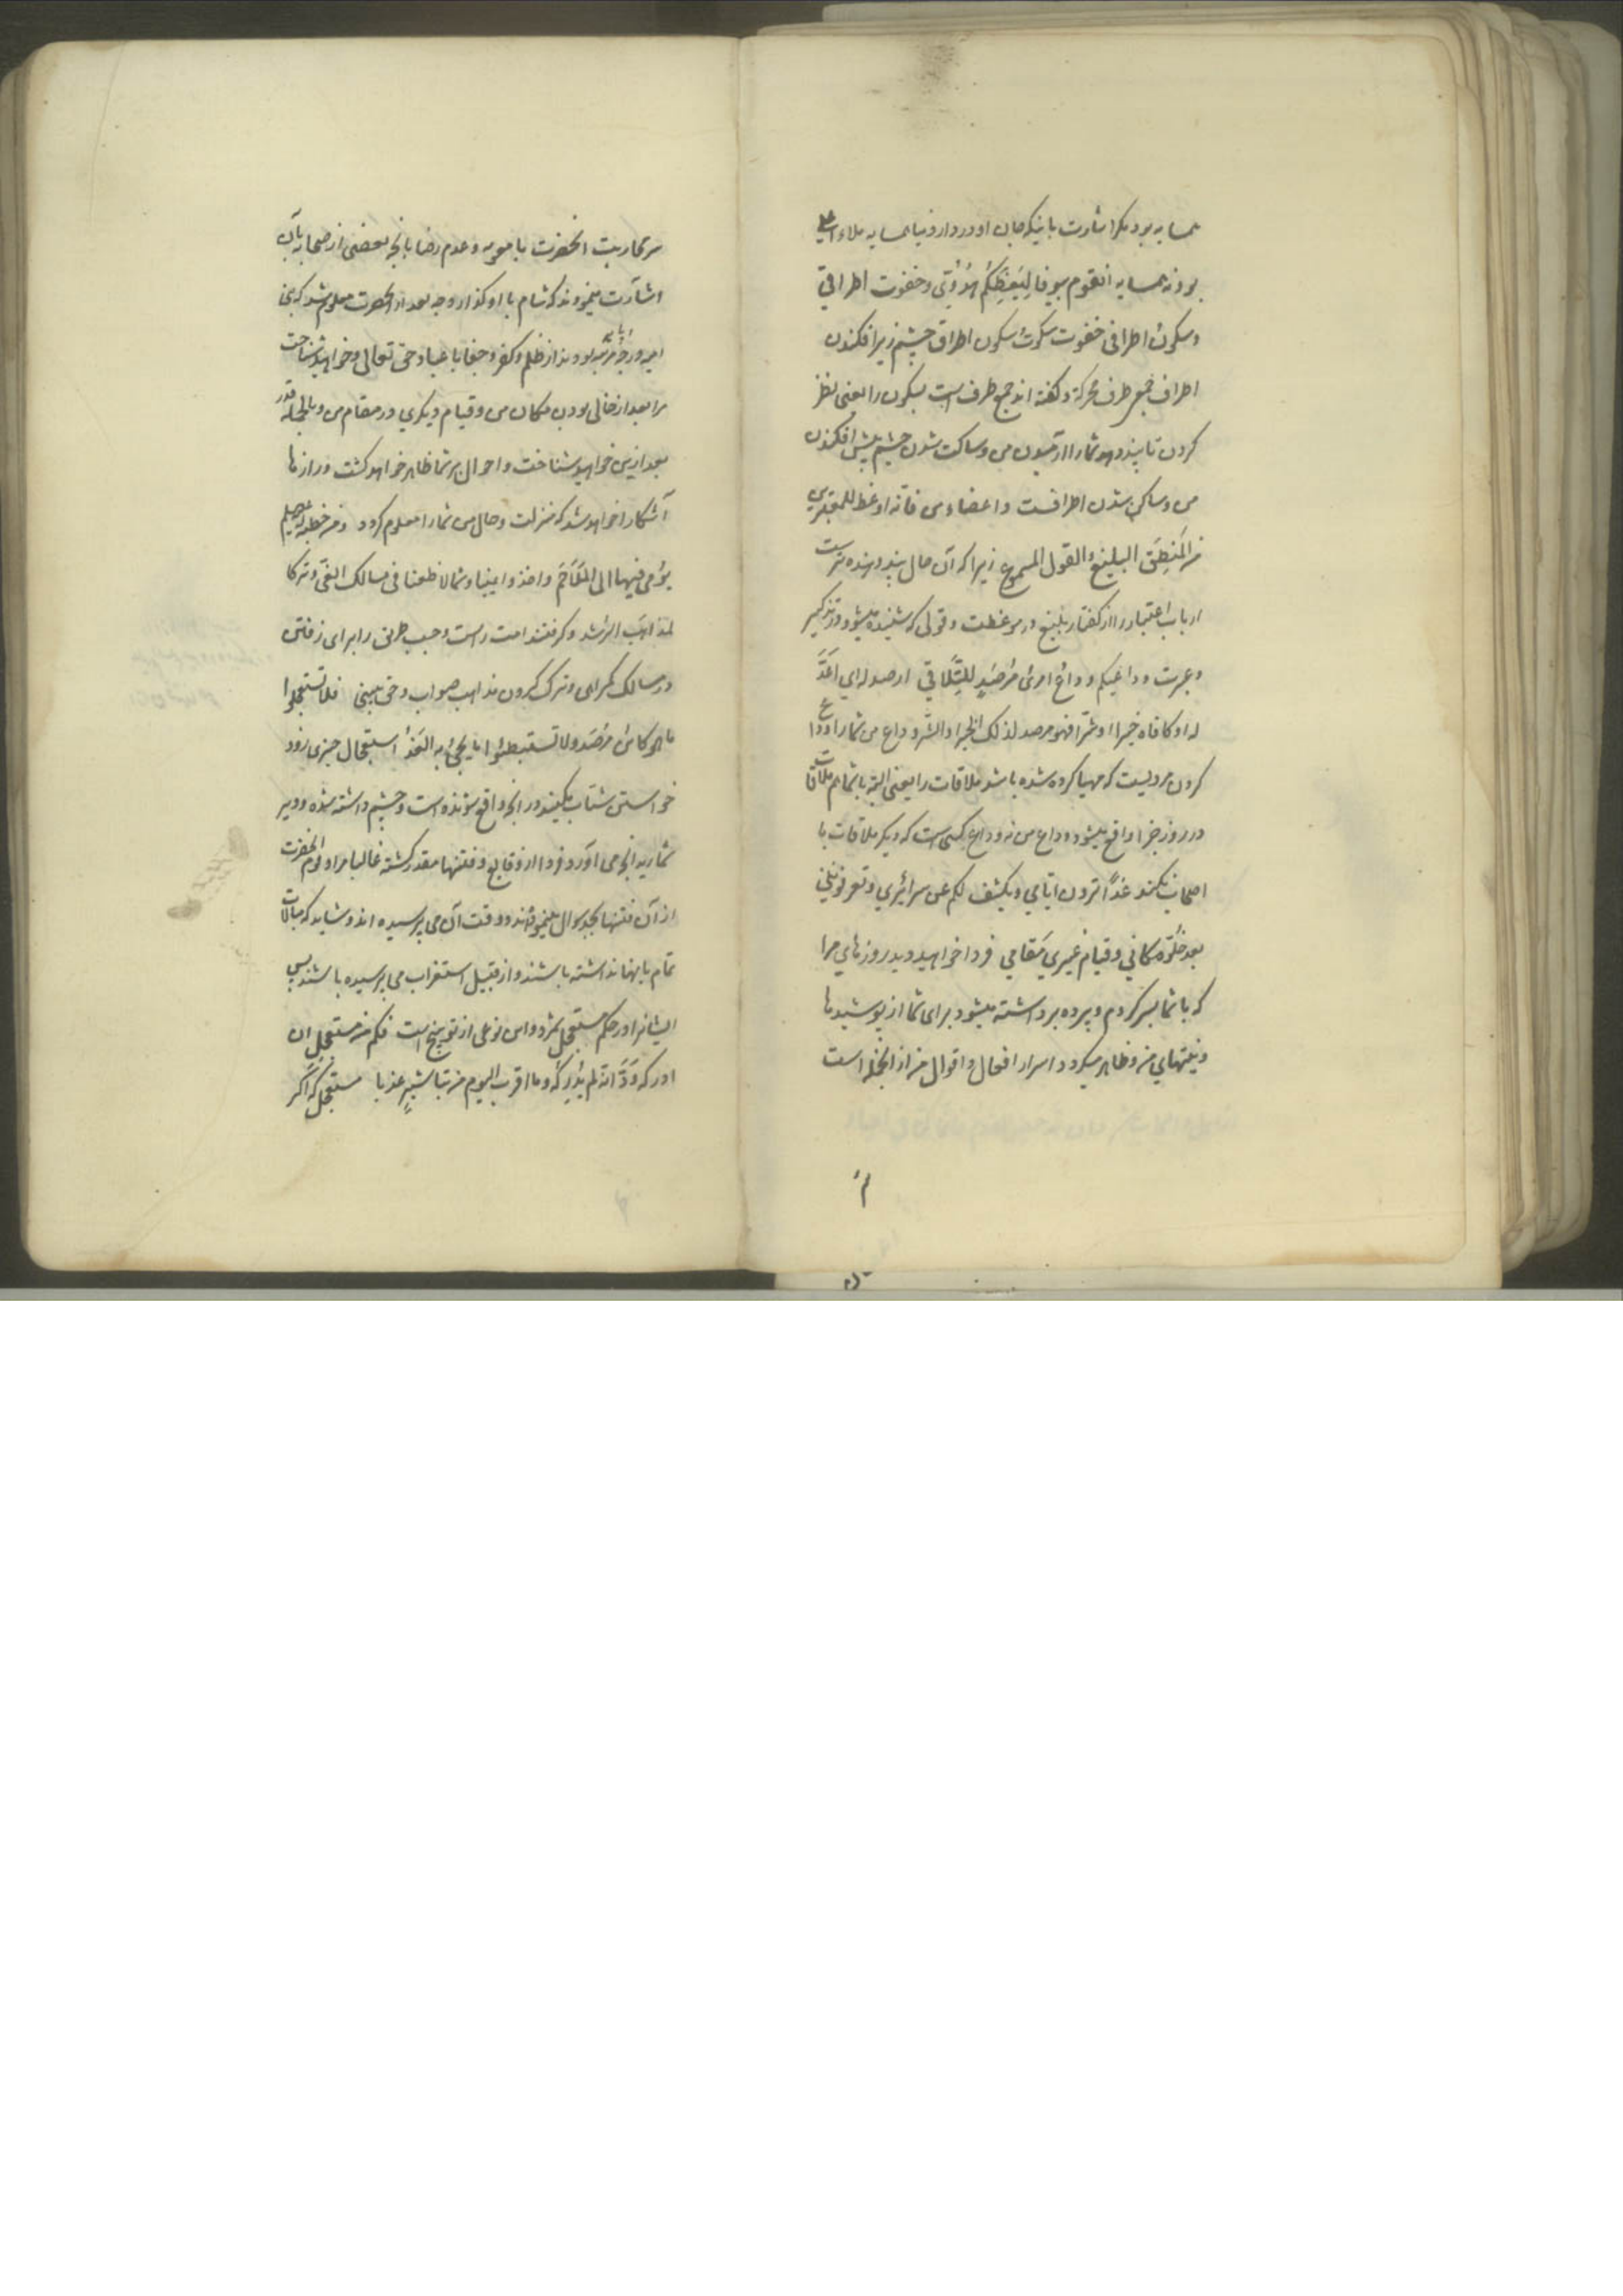 همسایه بود مگر اشارت باینکه جان او در دار دنیا همسایه ملاء اعلی
بود نه همسایه آنقوم بیوفا لِیَعِظَکُم هُدُوّی وخفوت اطراقی
وسکونُ اطرافی خفوت سکوت سکون اطراق چشم زیر افکندن
اطراف جمع طرف محرکة وگفته اند جمع طرف است بسکون را یعنی نظر
کردن تا پند دهد شما را آرمیدن من وساکت شدن چشم پیش افکندن
من وساکن شدن اطراف است واعضاء من فانّه اوعظ للمعتبرین
من المَنطِقِ البلیغِ والقول المسموع زیرا که آن حال پند دهنده ترست
ارباب اعتبار را از گفتار بلیغ در موعظت وقولی که شنیده میشود در تذکیر
وعبرت وداعیکم وداعُ امرئٍ مُرصَدٍ للتّلاقی ارصد له ای اَعَدَّ
له او کافاه خیراً او شرّاً فهو مرصد لذلک الخیر او الشّر وداع من شما را وداع
کردن مردیست که مهیا کرده شده باشد ملاقات را یعنی البته با شما هم ملاقات
در روز جزا واقع میشود و وداع من نه وداع کسی است که دیگر ملاقات با
اصحاب نکند غداً ترون ایّامی ویکشف لکم عن سرائری وتعرفوننی
بعد خُلُوّ مکانی وقیام غیری مَقامی فردا خواهید دید روزهای مرا
که با شما بسر کردم وپرده برداشته میشود برای شما از پوشیدها
ونیتهای من وظاهر میگردد اسرار افعال واقوال من از آنجمله است
سر محاربت آنحضرت با معویه وعدم رضا بآنچه بعضی از صحابه بآن
اشارت مینمودند که شام با او گذار وچه بعد از آنحضرت معلوم شد که بنی
امیه در چه مرتبه بودند از ظلم وکفر وجفا با عباد حق تعالی وخواهید شناخت
مرا بعد از خالی بودن مکان من وقیام دیگری در مقام من وبالجمله قدر
بعد ازین خواهید شناخت واحوال بر شما ظاهر خواهد گشت ورازها
آشکارا خواهد شد که منزلت وحال من شما را معلوم گردد ومن خطبة له علیه السلم
یؤمی فیها الی المَلاحَمِ واخذوا یمینا وشمالا ظعنا فی مسالک الغیّ وترکا
لمذاهب الرُشد وگرفتند امت راست وچپ طرق را برای رفتن
در مسالک گمراهی وترک کردن مذاهب صواب وحق مبین فلا تستعجلوا
ما هو کائنٌ مُرصَدٌ ولا تستبطئوا ما یجیءُ به الغَدُ استعجال چیزی زود
خواستن شتاب مکنید در آنچه واقع شونده است وچشم داشته شده ودیر
شمارید آنچه می آورد فردا از وقایع وفتنها مقدر گشته غالبا مراد لوم آنحضرت
از آن فتنها بجد سوال مینموده اند ووقت آن می پرسیده اند وشاید که مبالات
تمام بآنها نداشته باشند واز قبیل استغراب می پرسیده باشند پس
ایشانرا در حکم مستعجل شمرد واین نوعی از توبیخ است فکم من مستعجلٍ ان
ادرکه وَدَّ انّه لم یُدرِکه وما اقرب الیوم من تباشیرِ غد با مستعجل که اگر